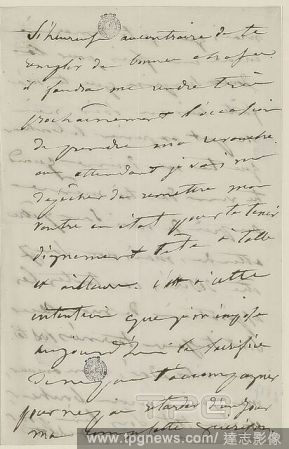 si heureuse au contraire de te
remplir de bonnes choses.
il faudra me rendre très
prochainement l'occasion
de prendre ma revanche.
en attendant je vais me
dépêcher de remettre mon
ventre en état pour te tenir
dignement tête à table
et ailleurs. C'est à cette
intention que je m'impose
aujourd'hui le sacrifice
de ne pas t'accompagner
pour ne pas retarder d'un jour
ma complète guérison
www.tpgnews.com / 達志影像